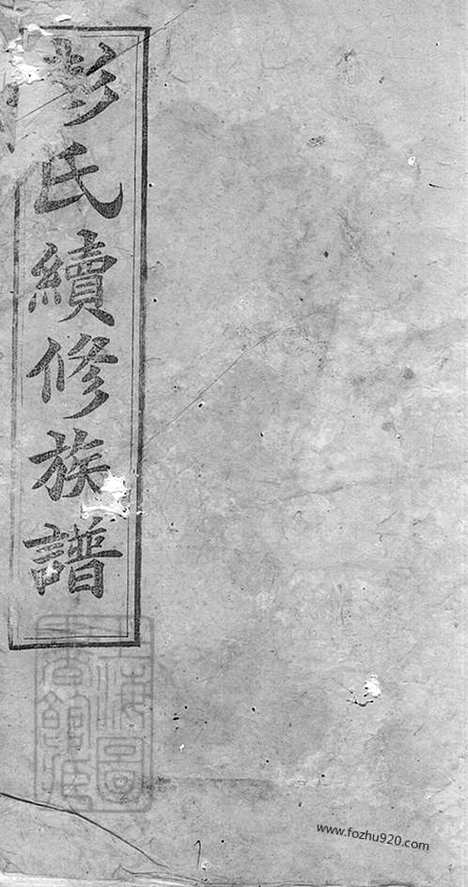 彭氏續修族譜
www.fozhu920.com